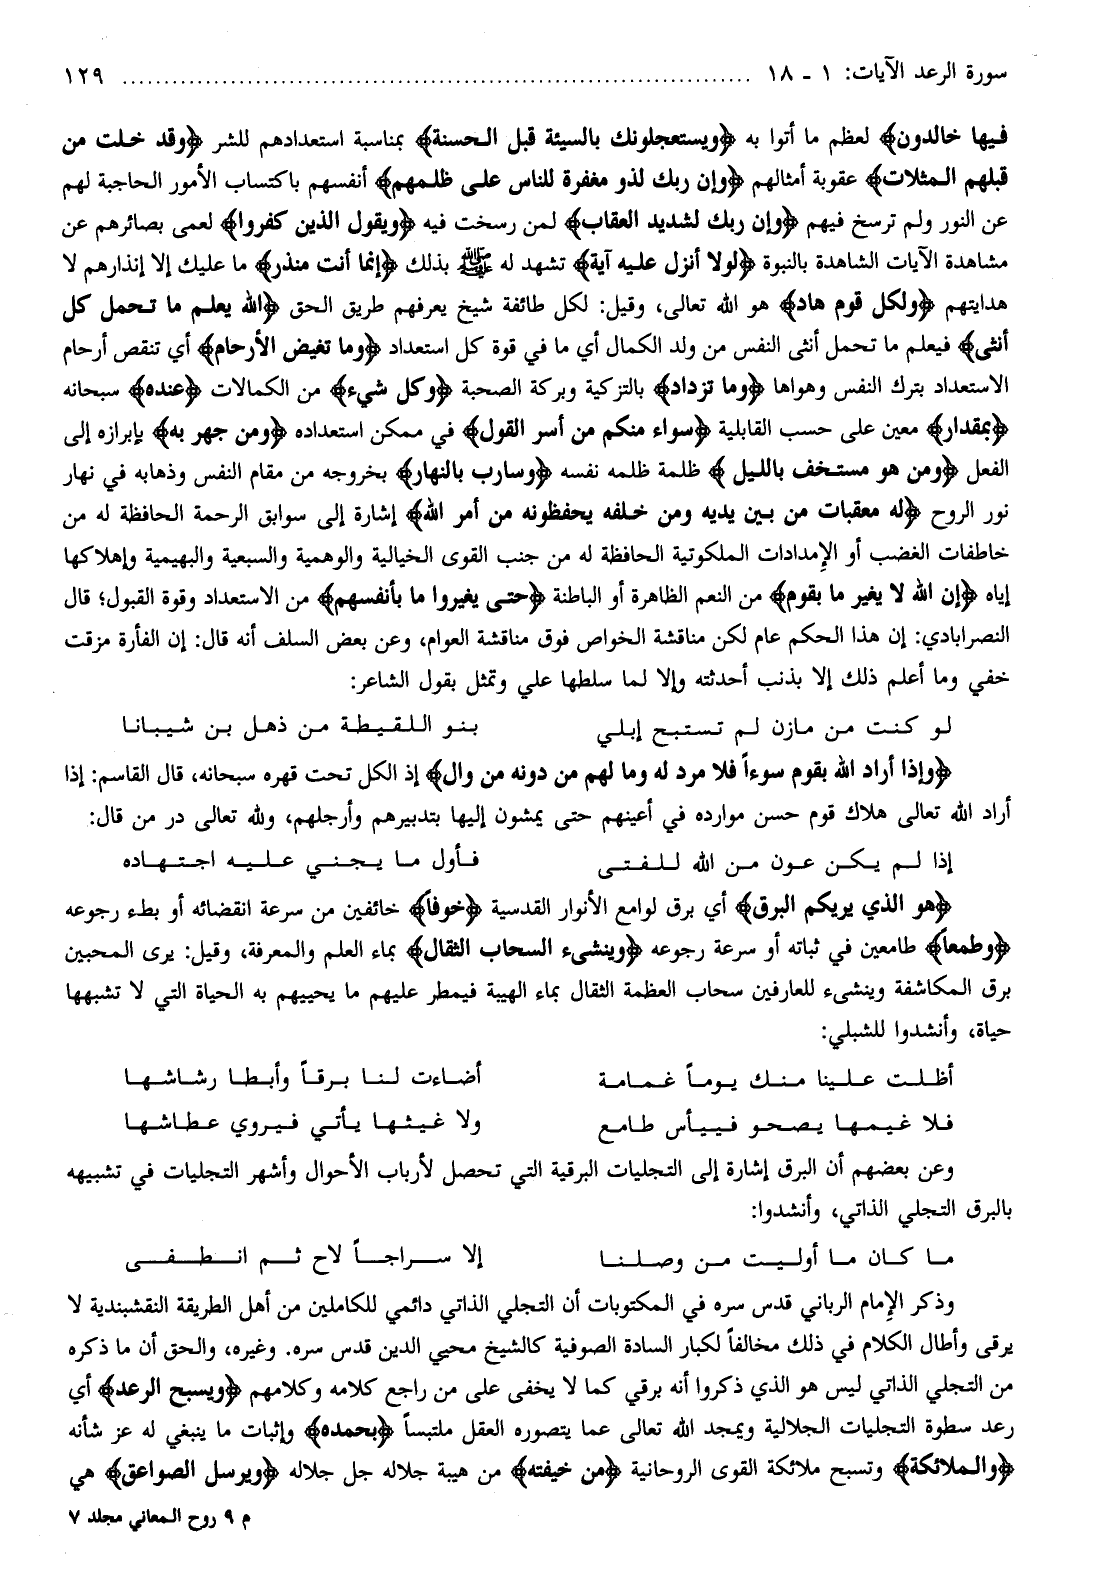 سورة الرعد الآيات: ١ - ١٨ ........................................................................ ١٢٩
فيها خالدون﴾ لعظم ما أتوا به ﴿ويستعجلونك بالسيئة قبل الحسنة﴾ بمناسبة استعدادهم للشر ﴿وقد خلت من
قبلهم المثلات﴾ عقوبة أمثالهم ﴿وإن ربك لذو مغفرة للناس على ظلمهم﴾ أنفسهم باكتساب الأمور الحاجبة لهم
عن النور ولم ترسخ فيهم ﴿وإن ربك لشديد العقاب﴾ لمن رسخت فيه ﴿ويقول الذين كفروا﴾ لعمى بصائرهم عن
مشاهدة الآيات الشاهدة بالنبوة ﴿لولا أنزل عليه آية﴾ تشهد له ﷺ بذلك ﴿إنما أنت منذر﴾ ما عليك إلا إنذارهم لا
هدايتهم ﴿ولكل قوم هاد﴾ هو الله تعالى، وقيل: لكل طائفة شيخ يعرفهم طريق الحق ﴿الله يعلم ما تحمل كل
أنثى﴾ فيعلم ما تحمل أنثى النفس من ولد الكمال أي ما في قوة كل استعداد ﴿وما تغيض الأرحام﴾ أي تنقص أرحام
الاستعداد بترك النفس وهواها ﴿وما تزداد﴾ بالتزكية وبركة الصحبة ﴿وكل شيء﴾ من الكمالات ﴿عنده﴾ سبحانه
﴿بمقدار﴾ معين على حسب القابلية ﴿سواء منكم من أسر القول﴾ في ممكن استعداده ﴿ومن جهر به﴾ بإبرازه إلى
الفعل ﴿ومن هو مستخف بالليل﴾ ظلمة ظلمه نفسه ﴿وسارب بالنهار﴾ بخروجه من مقام النفس وذهابه في نهار
نور الروح ﴿له معقبات من بين يديه ومن خلفه يحفظونه من أمر الله﴾ إشارة إلى سوابق الرحمة الحافظة له من
خاطفات الغضب أو الإمدادات الملكوتية الحافظة له من جنب القوى الخيالية والوهمية والسبعية والبهيمية وإهلاكها
إياه ﴿إن الله لا يغير ما بقوم﴾ من النعم الظاهرة أو الباطنة ﴿حتى يغيروا ما بأنفسهم﴾ من الاستعداد وقوة القبول؛ قال
النصرابادي: إن هذا الحكم عام لكن مناقشة الخواص فوق مناقشة العوام، وعن بعض السلف أنه قال: إن الفأرة مزقت
خفي وما أعلم ذلك إلا بذنب أحدثته وإلا لما سلطها علي وتمثل بقول الشاعر:
لو كنت من مازن لم تستبح إبلي بنو اللقيطة من ذهل بن شيبانا
﴿وإذا أراد الله بقوم سوءاً فلا مرد له وما لهم من دونه من وال﴾ إذ الكل تحت قهره سبحانه، قال القاسم: إذا
أراد الله تعالى هلاك قوم حسن موارده في أعينهم حتى يمشون إليها بتدبيرهم وأرجلهم، ولله تعالى در من قال:
إذا لم يكن عون من الله للفتى فأول ما يجني عليه اجتهاده
﴿هو الذي يريكم البرق﴾ أي برق لوامع الأنوار القدسية ﴿خوفاً﴾ خائفين من سرعة انقضائه أو بطء رجوعه
﴿وطمعاً﴾ طامعين في ثباته أو سرعة رجوعه ﴿وينشىء السحاب الثقال﴾ بماء العلم والمعرفة، وقيل: يرى المحبين
برق المكاشفة وينشىء للعارفين سحاب العظمة الثقال بماء الهيبة فيمطر عليهم ما يحييهم به الحياة التي لا تشبهها
حياة، وأنشدوا للشبلي:
أظلت علينا منك يوماً غمامة أضاءت لنا برقاً وأبطا رشاشها
فلا غيمها يصحو فييأس طامع ولا غيثها يأتي فيروي عطاشها
وعن بعضهم أن البرق إشارة إلى التجليات البرقية التي تحصل لأرباب الأحوال وأشهر التجليات في تشبيهه
بالبرق التجلي الذاتي، وأنشدوا:
ما كان ما أوليت من وصلنا إلا سراجاً لاح ثم انطفى
وذكر الإمام الرباني قدس سره في المكتوبات أن التجلي الذاتي دائمي للكاملين من أهل الطريقة النقشبندية لا
يرقى وأطال الكلام في ذلك مخالفاً لكبار السادة الصوفية كالشيخ محيي الدين قدس سره. وغيره، والحق أن ما ذكره
من التجلي الذاتي ليس هو الذي ذكروا أنه برقي كما لا يخفى على من راجع كلامه وكلامهم ﴿ويسبح الرعد﴾ أي
رعد سطوة التجليات الجلالية ويمجد الله تعالى عما يتصوره العقل ملتبساً ﴿بحمده﴾ وإثبات ما ينبغي له عز شأنه
﴿والملائكة﴾ وتسبح ملائكة القوى الروحانية ﴿من خيفته﴾ من هيبة جلاله جل جلاله ﴿ويرسل الصواعق﴾ هي
م ٩ روح المعاني مجلد ٧